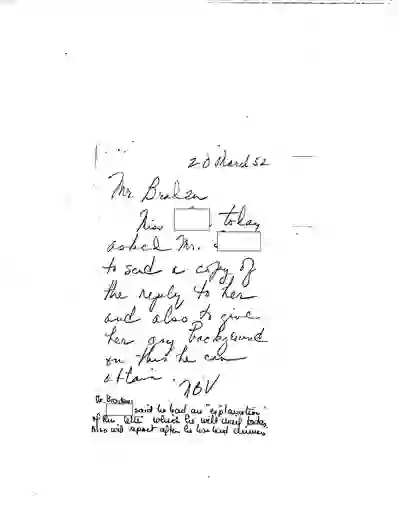 20 March 52
Mr.
Miss , today
asked Mr.
to send a copy of
the reply to her
and also to give
her any background
on this he can
obtain.
said he had an "explanation"
of this which he will today
Also will report after he has had